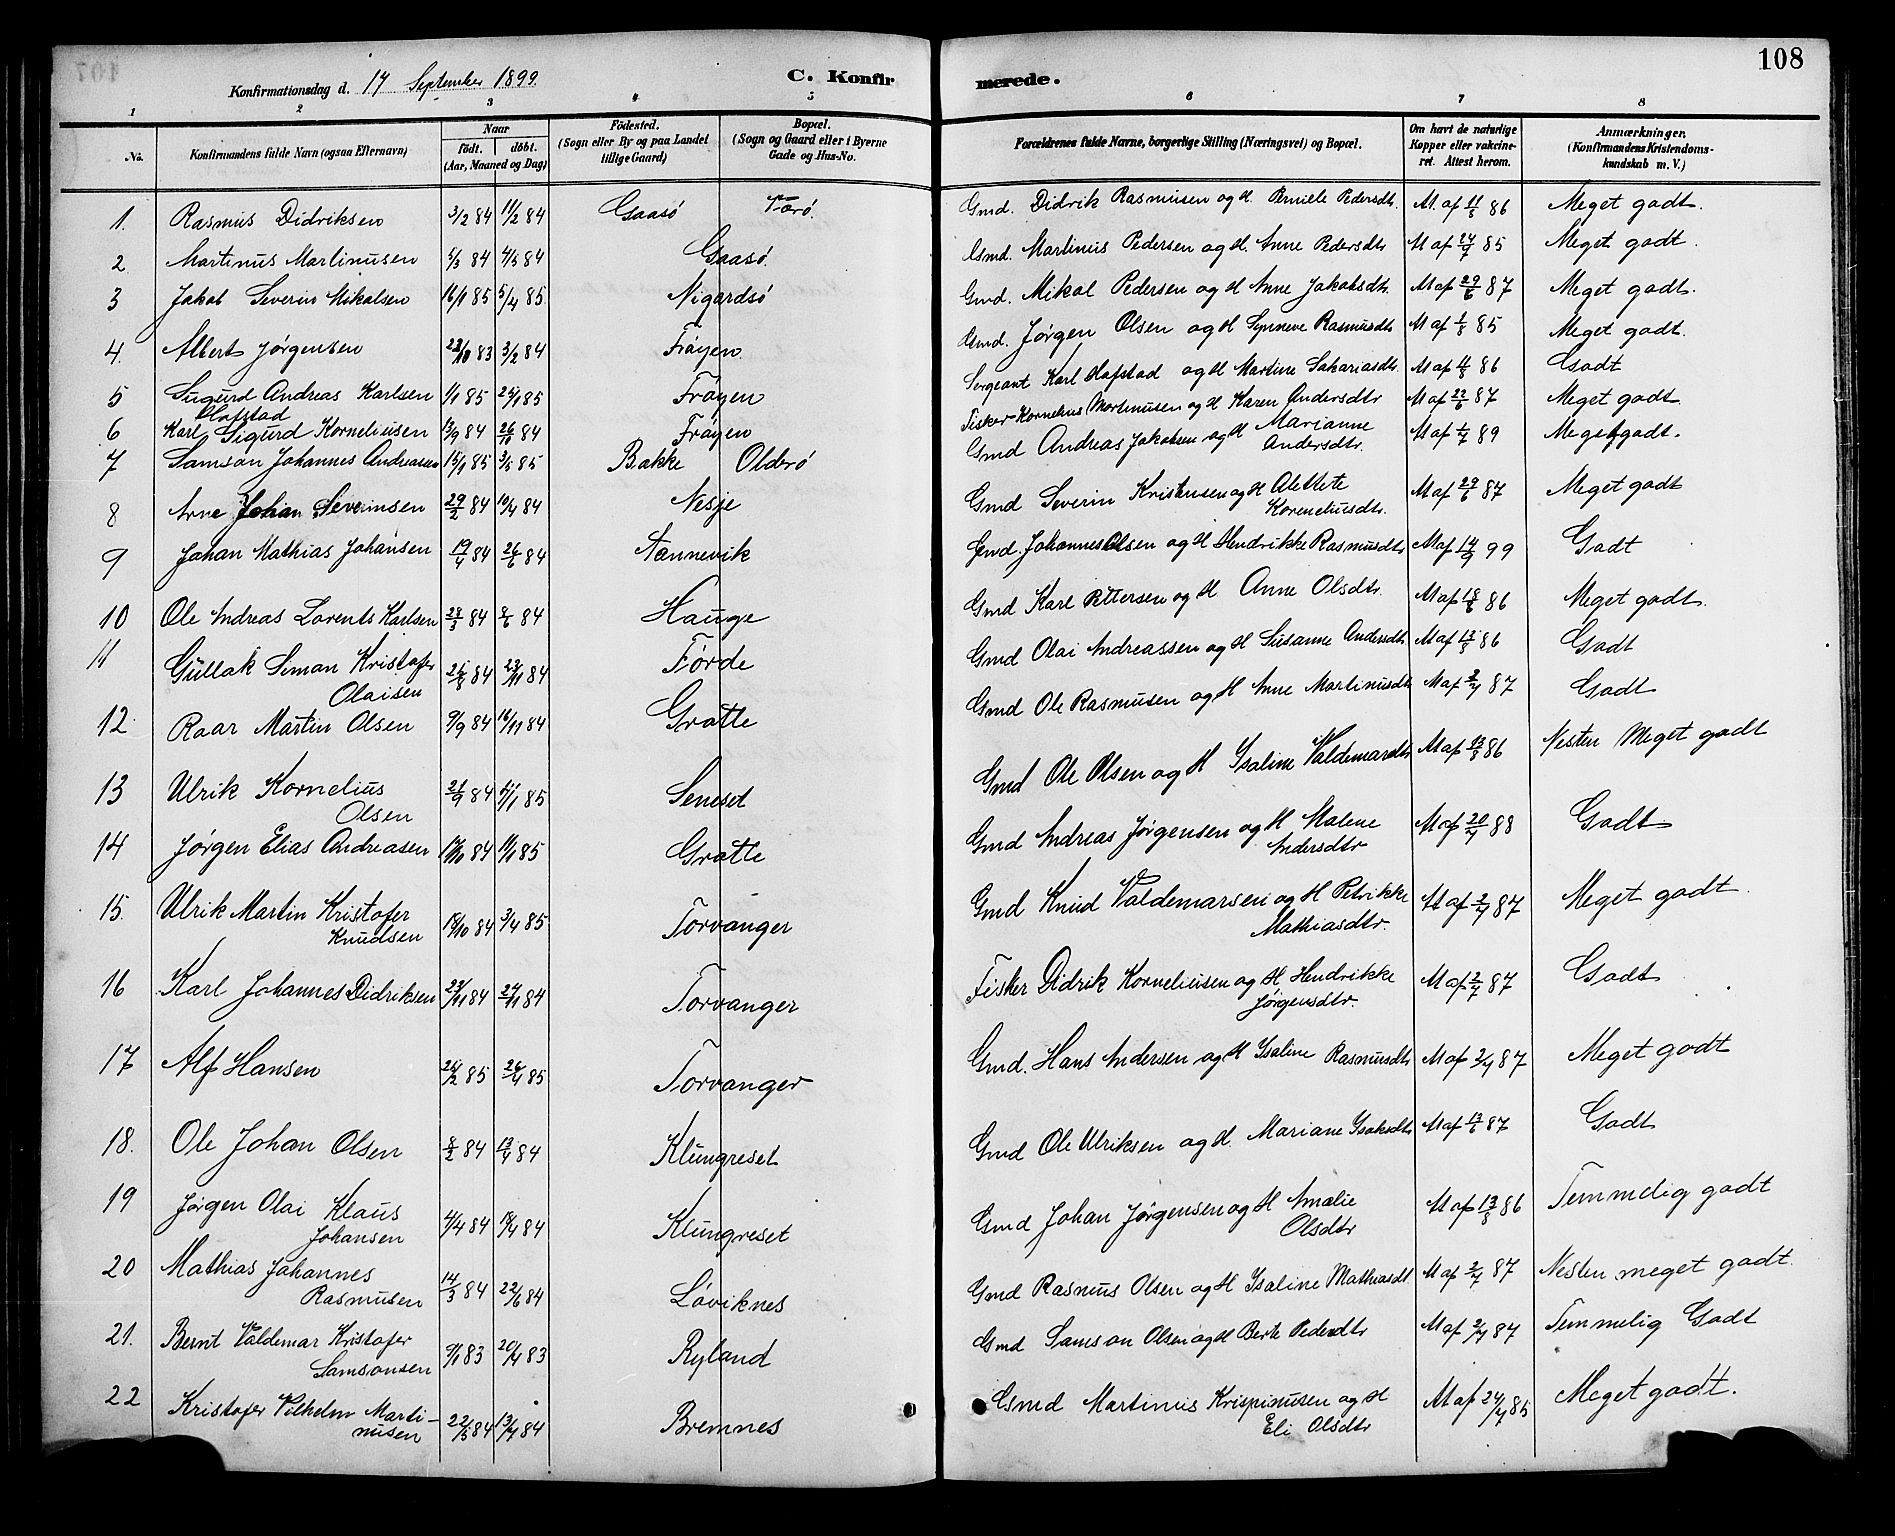 108
Konfirmationsdag d. 17 September 1899
C. Konfirmerede.
1 2 3 4 5 6 7 8
No. Konfirmandens fulde Navn (ogsaa Efternavn) Naar født. døbt. (Aar, Maaned og Dag) Fødested. (Sogn eller By og paa Landet tillige Gaard) Bopæl. (Sogn og Gaard eller i Byerne Gade og Hus-No. Forældrenes fulde Navne, borgerlige Stilling (Næringsvei) og Bopæl. Om havt de naturlige Kopper eller vakcineret. Attest herom. Anmærkninger. (Konfirmandens Kristendomskundskab m. V.)
1. Rasmus Didriksen 3/2 84 11/2 84 Gaasø Færø. Gmd. Didrik Rasmusen og H. Perniele Pedersdt. M. af 11/8 86 Meget godt.
2. Martinus Martinusen 5/3 84 4/5 84 Gaasø. Gmd. Martinus Pedersen og H. Anne Pedersdtr M af 24/7 85 Meget godt.
3 Jakob Severin Mikalsen 16/1 85 5/4 85 Nigardsø Gmd. Mikal Pedersen og H Anne Jakobsdtr. M af 29/6 87 Meget godt.
4. Albert Jørgensen 23/10 83 3/2 84 Frøyen Gmd. Jørgen Olsen og H Synneve Rasmusdtr M af 1/8 85 Meget godt.
5 Sugurd Andreas Karlsen Hafstad 1/1 85 25/1 85 Frøyen Sergeant Karl Hafstad og H Martine Sakariasdtr. M af 4/8 86 Godt
6 Karl Sigurd Korneliusen 13/9 84 26/10 84 Frøyen Fisker Kornelius Mortinusen og H Karen Andersdtr M af 29/6 87 Meget godt
7 Samson Johannes Andreasen 15/1 85 3/5 85 Bakke Olderø Gmd Andreas Jakobsen og H Marianne Andersdtr. M af 1/7 89 Meget godt.
8 Arne Johan Severinsen 29/2 84 10/4 84 Nesje Gmd Severin Kristensen og H Alettete Korneliusdtr. M af 29/6 87 Meget godt
9 Johan Mathias Johansen 19/4 84 26/6 84 Tennevik Gmd. Johannes Olsen og H Hendrikke Rasmusdtr M af 14/9 99 Godt
10 Ole Andreas Lorents Karlsen 28/3 84 8/6 84 Hauge Gmd Karl Pettersen og H Anne Olsdtr. M af 18/8 86 Meget godt.
11 Gullak Simon Kristofer Olaisen 25/8 84 23/11 84 Førde Gmd Olai Andreassen og H Susanne Andersdtr M af 13/8 86 Godt
12. Roar Martin Olsen 9/9 84 16/11 84 Gratte Gmd Ole Rasmusen og H Anne Martinusdtr M af 2/7 87 Godt
13 Ulrik Kornelius Olsen 21/9 84 11/1 85 Semset Gmd Ole Olsen og H Ysaline Valdemarsdtr M af 13/8 86 Nesten Meget godt
14 Jørgen Elias Andreasen 17/10 84 11/1 85 Gratte Gmd Andreas Jørgensen og H Malene Andersdtr M af 20/7 88 Godt
15. Ulrik Martin Kristofer Knudsen 19/10 84 3/4 85 Torvanger Gmd Knud Valdemarsen og H Petrikke Mathiasdtr. M af 2/7 87 Meget godt
16 Karl Johannes Didriksen 23/11 84 27/11 84 Torvanger Fisker Didrik Korneliusen og H Hendrikke Jørgensdtr. M af 2/7 87 Godt
17 Alf Hansen 24/2 85 26/4 85 Torvanger Gmd. Hans Andersen og H Ysaline Rasmusdtr M af 2/7 87 Meget godt
18. Ole Johan Olsen 8/2 84 13/4 84 Klungreset Gmd Ole Ulriksen og H Mariane Ysaksdtr M af 13/6 87 Godt
19 Jørgen Olai Klaus Johansen 4/4 84 18/4 84 Klungreset Gmd Johan Jørgensen og H Amalie Olsdtr M af 13/8 86 Temmelig godt
20 Mathias Johannes Rasmusen 14/3 84 22/6 84 Løviknes Gmd Rasmus Olsen og H Ysaline Mathiasdt. M af 2/7 87 Nesten meget godt.
21. Bernt Valdemar Kristofer Samsonsen 9/1 83 20/4 83 Ryland Gmd Samson Olsen og H Berte Pedersdtr M af 2/7 87 Temmelig Godt
22 Kristofer Vilhelm Martinusen 22/3 84 13/4 84 Bremnes Gmd Martinus Krispinusen og H Eli Olsdtr M af 24/7 85 Meget godt.